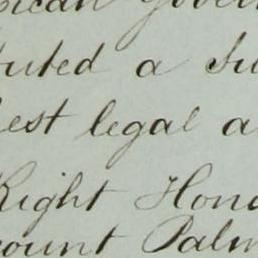 rican Govern
tuted a Su
est legal a
Right Hono
count Palm